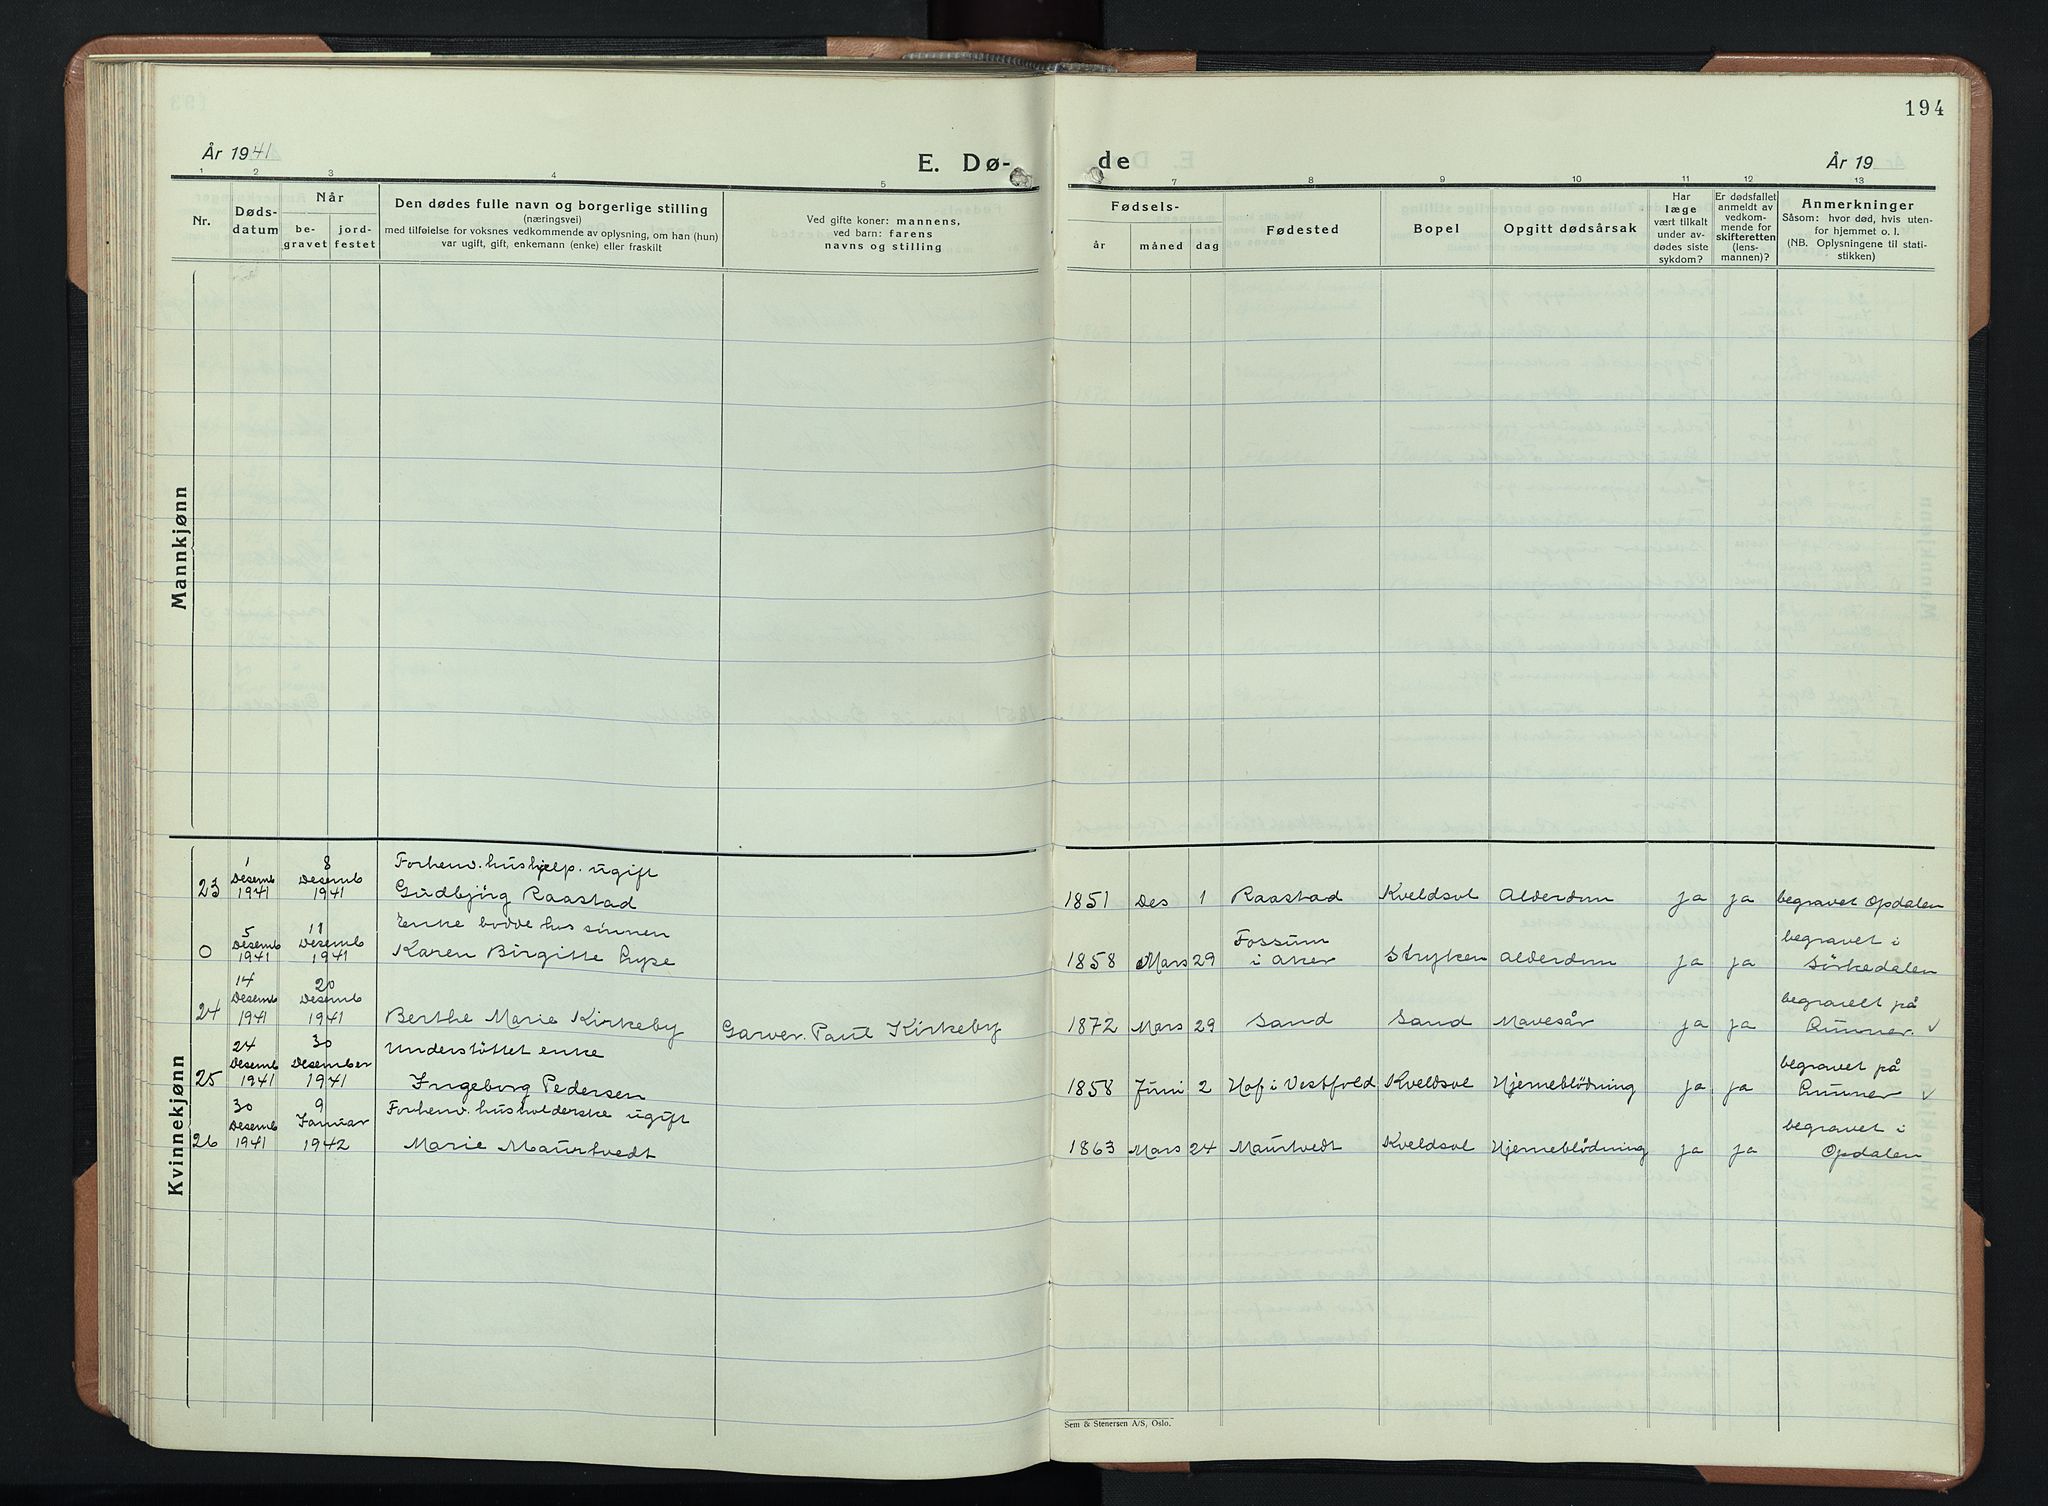 194
År 1941
E. Dø-
de
År 19
1 2 3 4 5
7 8 9 10 11 12 13
Nr.
Døds-
datum
Når
be-
gravet
jord-
festet
Den dødes fulle navn og borgerlige stilling
(næringsvei)
med tilføielse for voksnes vedkommende av oplysning, om han (hun)
var ugift, gift, enkemann (enke) eller fraskilt
Ved gifte koner: mannens,
ved barn: farens
navns og stilling
Fødsels-
år
måned
dag
Fødested
Bopel
Opgitt dødsårsak
Har
læge
vært tilkalt
under av-
dødes siste
sykdom?
Er dødsfallet
anmeldt av
vedkom-
mende for
skifteretten
(lens-
mannen)?
Anmerkninger
Såsom: hvor død, hvis uten-
for hjemmet o. l.
(NB. Oplysningene til stati-
stikken)
Mannkjønn
Kvinnekjønn
1 8 Forhenv. hushjelp. ugift
Desemb Desemb
23 1941 1941 Gudbjørg Raastad 1851 Des 1 Raastad Kveldsol Alderdom ja ja begravet Opdalen
5 11 Enke bodde hos sønnen
Desemb Desemb Fossum begravet i
0 1941 1941 Karen Birgitte 1858 Mars 29 i Aker Stryken Alderdom ja ja Sørkedalen
14 20
Desemb Desemb begravelt på
24 1941 1941 Berthe Marie Kirkeby Garver. Paul Kirkeby 1872 Mars 29 Sand Sand Mavesår ja ja Lunner ✓
24 30 Understøttet enke
Desemb Desember begravet på
25 1941 1941 Ingeborg Pedersen 1858 Juni 2 Hof i Vestfold Kveldsol Hjerneblødning ja ja Lunner ✓
30 9 Forhenv. husholderske ugift
Desemb Januar begravet i
26 1941 1942 Marie Maurtvedt 1863 Mars 24 Maurtvedt Kveldsol Hjerneblødning ja ja Opdalen
Sem & Stenersen A/S, Oslo.